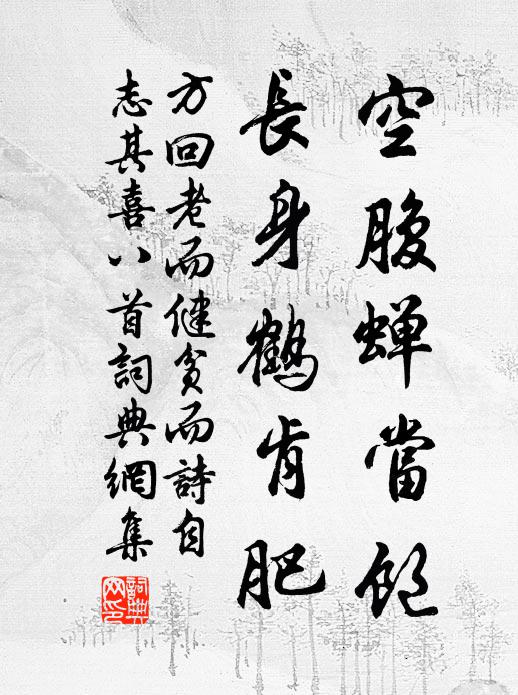 空腹蝉當飽
長身鶴肯肥
方回老而健貧而詩自
志其喜八首詞典網集